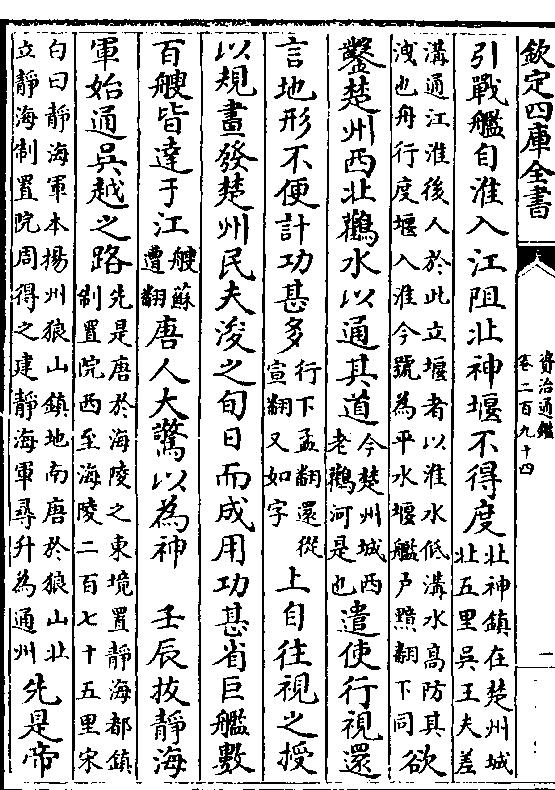 欽定四庫全書
資治通鑑
卷二百九十四
一
引戰艦自淮入江阻北神堰不得度北神鎮在楚州城北五里吳王夫差
溝通江淮後人於此立堰者以淮水低溝水高防其洩也舟行度堰入淮今號為平水堰艦戶黤翻下同欲
鑿楚州西北鸛水以通其道今楚州城西老鸛河是也遣使行視還
言地形不便計功甚多行下孟翻還從宣翻又如字上自往視之授
以規畫發楚州民夫浚之旬日而成用功甚省巨艦數
百艘皆達于江艘蘇遭翻唐人大驚以為神 壬辰拔靜海
軍始通吳越之路先是唐於海陵之東境置靜海都鎮制置院西至海陵二百七十五里宋
白曰靜海軍本揚州狼山鎮地南唐於狼山北立靜海制置院周得之建靜海軍尋升為通州先是帝